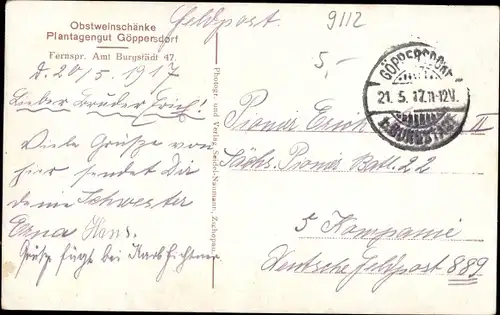 Obstweinschänke
Plantagengut Göppersdorf
Fernspr. Amt Burgstädt 47.
Feldpost
9112
5,-
d. 20/5. 1917
Lieber Bruder Erich!
Viele Grüße von
hier sendet Dir
deine Schwester
Erna Hans.
Gruß fügt bei
Photogr. und Verlag Seidel-Naumann, Zschopau.
GÖPPERSDORF
21. 5. 17. 11-12V.
Pionier Erich
Sächs. Pionier Batl. 22
5 Kompanie
Deutsche Feldpost 889